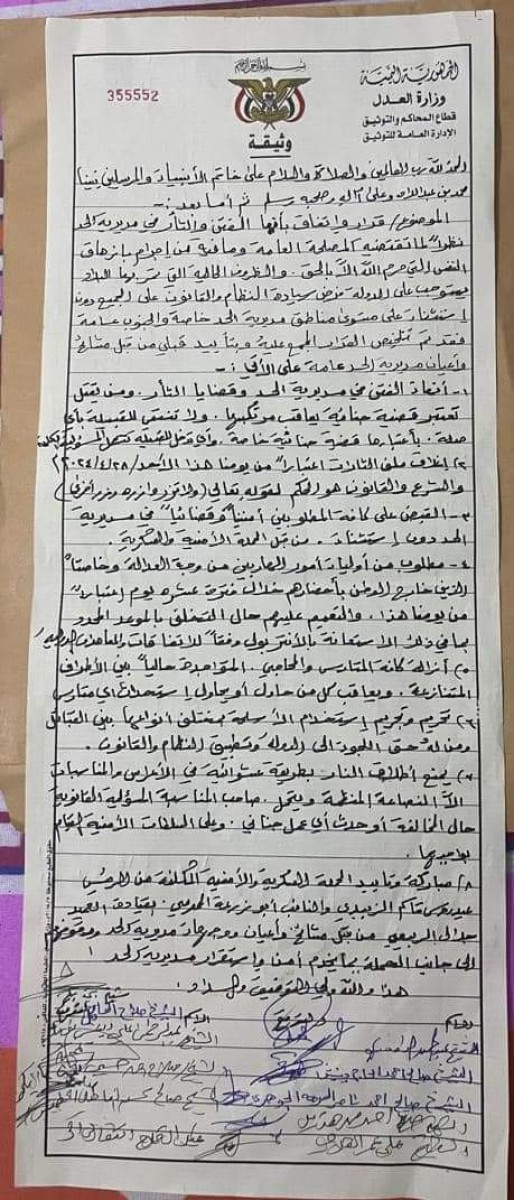 بسم الله الرحمن الرحيم
الجمهورية اليمنية
وزارة العدل
قطاع المحاكم والتوثيق
الإدارة العامة للتوثيق
355552
وثيقة
الحمد لله رب العالمين والصلاة والسلام على خاتم الأنبياء والمرسلين نبينا
محمد بن عبدالله وعلى آله وصحبه وسلم ثم أما بعد :-
الموضوع / قرار واتفاق بإنهاء الفتن والثأر في مديرية الحد
نظراً لما تقتضيه المصلحة العامة وما فيه من إجرام بإزهاق
النفس التي حرم الله إلا بالحق . والظروف الحالية التي تمر بها البلاد
يستوجب على الدولة فرض سيادة النظام والقانون على الجميع دون
إستثناء على مستوى مناطق مديرية الحد خاصة والجنوب عامة
فقد تم تلخيص القرار المجمع عليه وبتأييد قبلي من قبل مشائخ
وأعيان مديرية الحد عامة على الآتي :-
١- الفتن في مديرية الحد وقضايا الثأر . ومن يقتل
تعتبر قضية جنائية يعاقب مرتكبها . ولا تعتني للقبيلة بأي
صلة . بأعتبارها قضية جنائية خاصة .
٢) إغلاق ملف الثارات اعتباراً من يومنا هذا الأحد ٢٠٢٤/٤/٢٨
والشرع والقانون هو الحكم لقوله تعالى (ولا تزر وازرة وزر أخرى)
٣- القبض على كافة المطلوبين أمنياً وقضائياً في مديرية
الحد دون إستثناء . من قبل الحملة الأمنية والعسكرية .
٤- مطلوب من أوليات أمور الهاربين من وجه العدالة وخاصتاً
الذين خارج الوطن بأحضارهم خلال فترة عشره يوم إعتباراً
من يومنا هذا . والتعميم عليهم حال التخلف بالموعد المحدد
بما في ذلك الاستعانة بالأنتربول وفقاً للاتفاقات والمعاهدات الدولية
٥) أزالة كافة المتارس والمحاجي . المتواجدة حالياً بين الأطراف
المتنازعة . ويعاقب كل من حاول أو يحاول إستحداث أي متارس
٦) تحريم وتجريم إستخدام الأسلحة بمختلف أنواعها بين القبائل
ومن له حق اللجوء الى الدولة وتطبيق النظام والقانون .
٧) يمنع أطلاق النار بطريقة عشوائية في الأعراس والمناسبات
المنظمة ويتحمل صاحب المناسبة المسؤلية القانونية
حال المخالفة أو حدث أي عمل جنائي . وعلى السلطات الأمنية القيام
بواجبها .
٨) مباركة وتأييد الحملة العسكرية والأمنية المكلفة من الرئيس
عيدروس قاسم الزبيدي والنائب أبو زرعة المحرمي . بقيادة العميد
جلال الربيعي من قبل مشائخ وأعيان ووجهاء مديرية الحد ووقوفهم
الى جانب الحملة بما يخدم أمن واستقرار مديرية الحد !
هذا والله ولي التوفيق والسداد ..
الاسم
التوقيع
الاسم
الشيخ صالح احمد